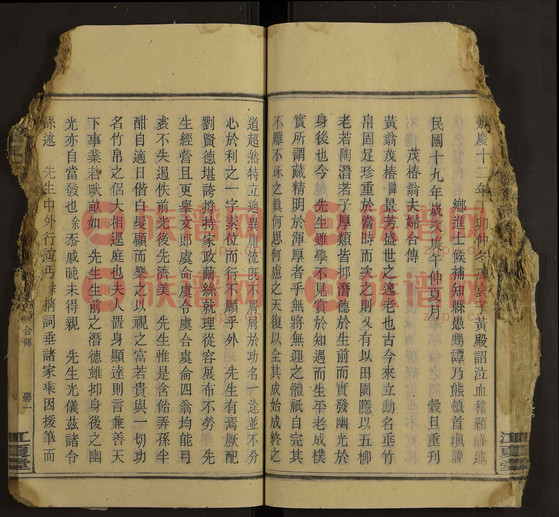 嘉慶十二年 仲冬 黃殿詔泣血稽顙謹述
鄉進士候補知縣愚甥譚乃熊頓首填諱
民國十九年歲次庚午仲夏月 穀旦重刊
茂椿翁夫婦合傳
黃翁茂椿諱景芳盛世之逸老也古今來立勳名垂竹
帛固足珍重於當時而次之則又有以田園隱以五柳
老若陶潛若子厚類皆抑潛德於生前而實發幽光於
身後也今 先生雖學不見賞於知遇而生平老成樸
實所謂藏精明於渾厚者乎無將無迎之體祇自完其
不雕不琢之真何思何慮之天復以全其成始成終之
道超然特立迥異庸流既不屑屑於功名一途並不分
心於利之一字素位而行不願乎外 先生有焉厥配
劉賢德堪誇撐持家政繭絲就理從容展布不勞 先
生經營且更舉丈郎虞命虞令虞合虞侖四翁均能弓
裘不失遏佚前光後先濟美 先生惟是含飴弄孫半
酣自適日偕白髮顧而樂之以視之富若貴與一切功
名竹帛之侶大相逕庭也夫人置身顯達則言兼善天
下事業赴畎畝如 先生生前之潛德雖抑身後之幽
光亦自當發也余忝戚晚未得親 先生光儀茲諸合
孫述 先生中外行諱丐余摛詞垂諸家乘因援筆而
合傳
江夏堂